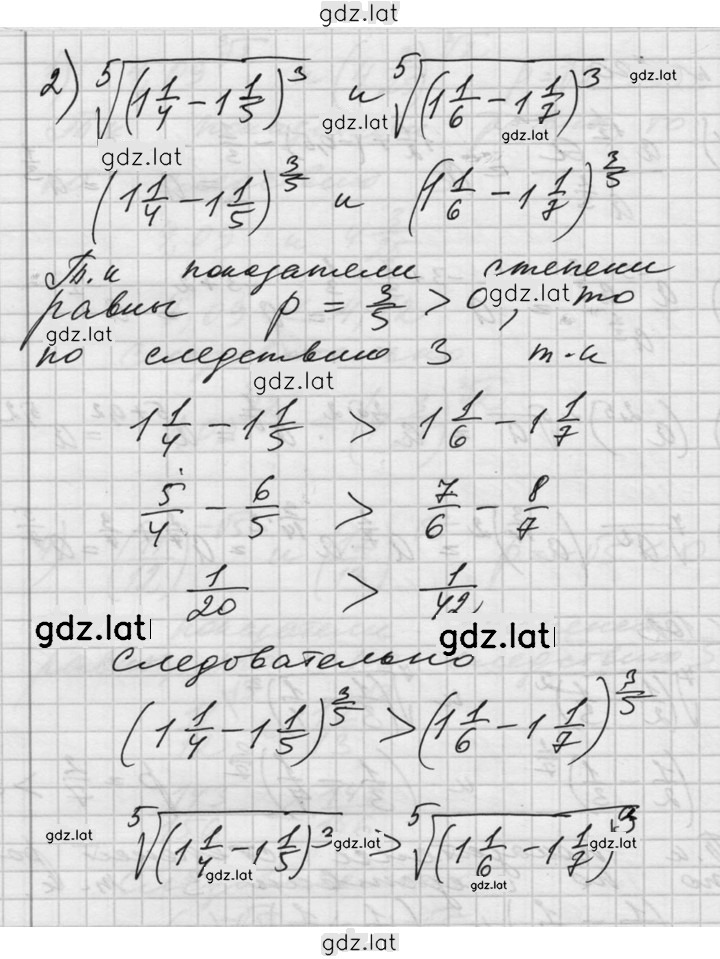 gdz.lat
2) ⁵√(1 1/4 − 1 1/5)³ и ⁵√(1 1/6 − 1 1/7)³ gdz.lat
gdz.lat gdz.lat gdz.lat
(1 1/4 − 1 1/5)^(3/5) и (1 1/6 − 1 1/7)^(3/5)
Т.к показатели степени
равны p = 3/5 > 0, то gdz.lat
gdz.lat
по следствию 3 т.к
gdz.lat
1 1/4 − 1 1/5 > 1 1/6 − 1 1/7
5/4 − 6/5 > 7/6 − 8/7
1/20 > 1/42,
gdz.lat gdz.lat
Следовательно
(1 1/4 − 1 1/5)^(3/5) > (1 1/6 − 1 1/7)^(3/5)
gdz.lat ⁵√(1 1/4 − 1 1/5)³ > ⁵√(1 1/6 − 1 1/7)³ gdz.lat gdz.lat
gdz.lat gdz.lat
gdz.lat